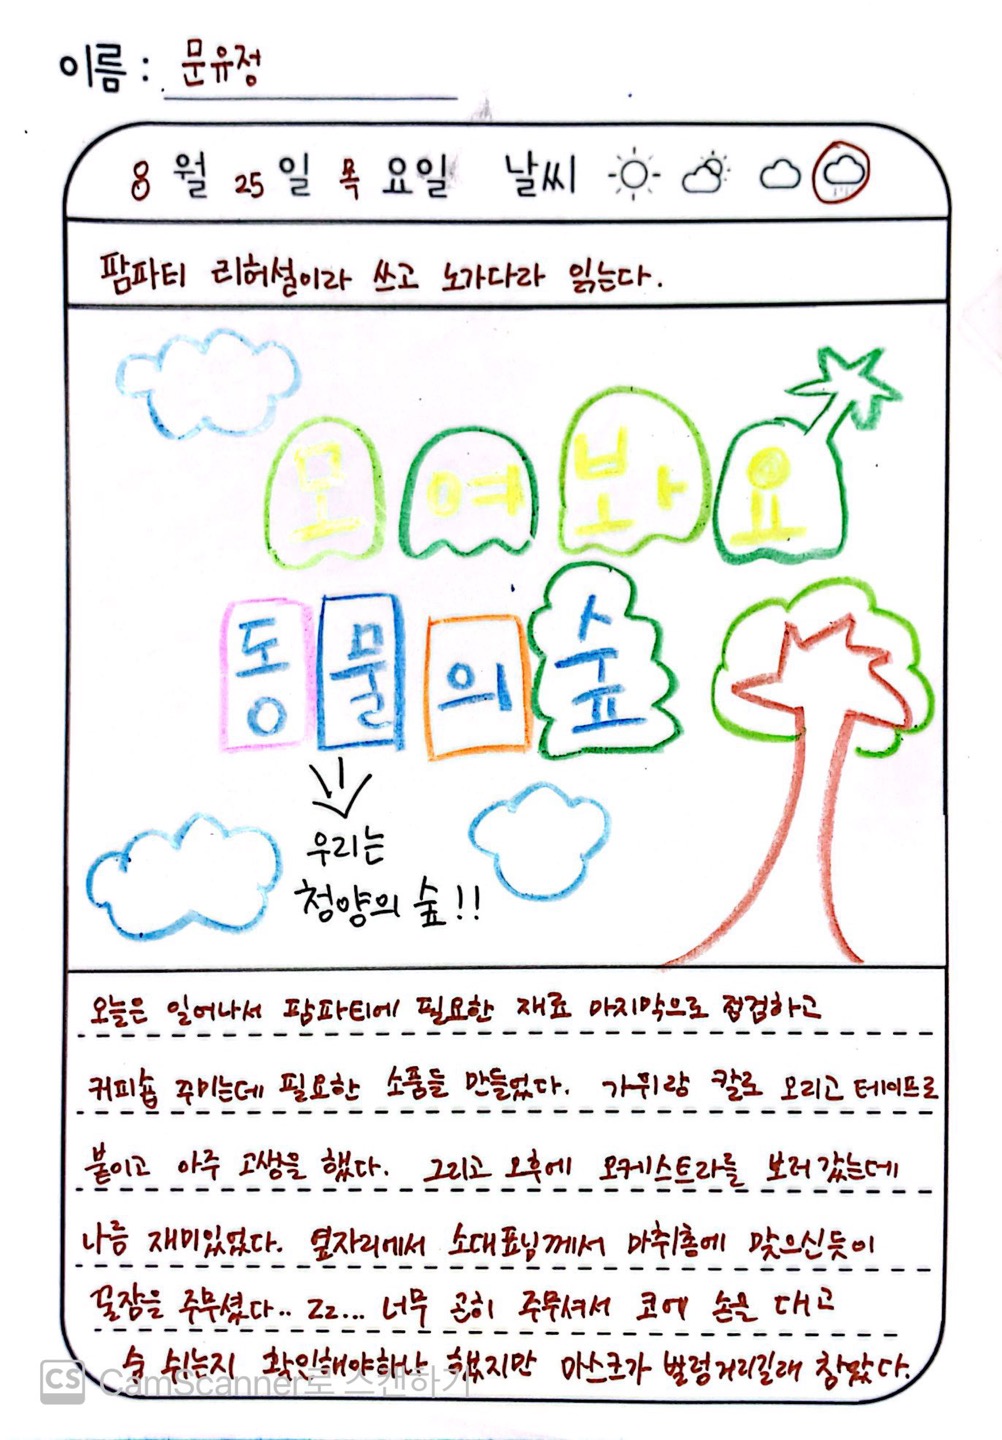 이름 : 문유정
8 월 25 일 목 요일 날씨
팜파티 리허설이라 쓰고 노가다라 읽는다.
모여봐요
동물의숲
우리는
청양의 숲!!
오늘은 일어나서 팜파티에 필요한 재료 마지막으로 점검하고
커피숍 꾸미는데 필요한 소품들 만들었다. 가위랑 칼로 오리고 테이프로
붙이고 아주 고생을 했다. 그리고 오후에 오케스트라를 보러 갔는데
나름 재미있었다. 옆자리에서 소대표님께서 마취총에 맞으신듯이
꿀잠을 주무셨다.. zz... 너무 곤히 주무셔서 코에 손을 대고
숨 쉬는지 확인해야하나 했지만 마스크가 벌렁거리길래 참았다.
CS CamScanner로 스캔하기